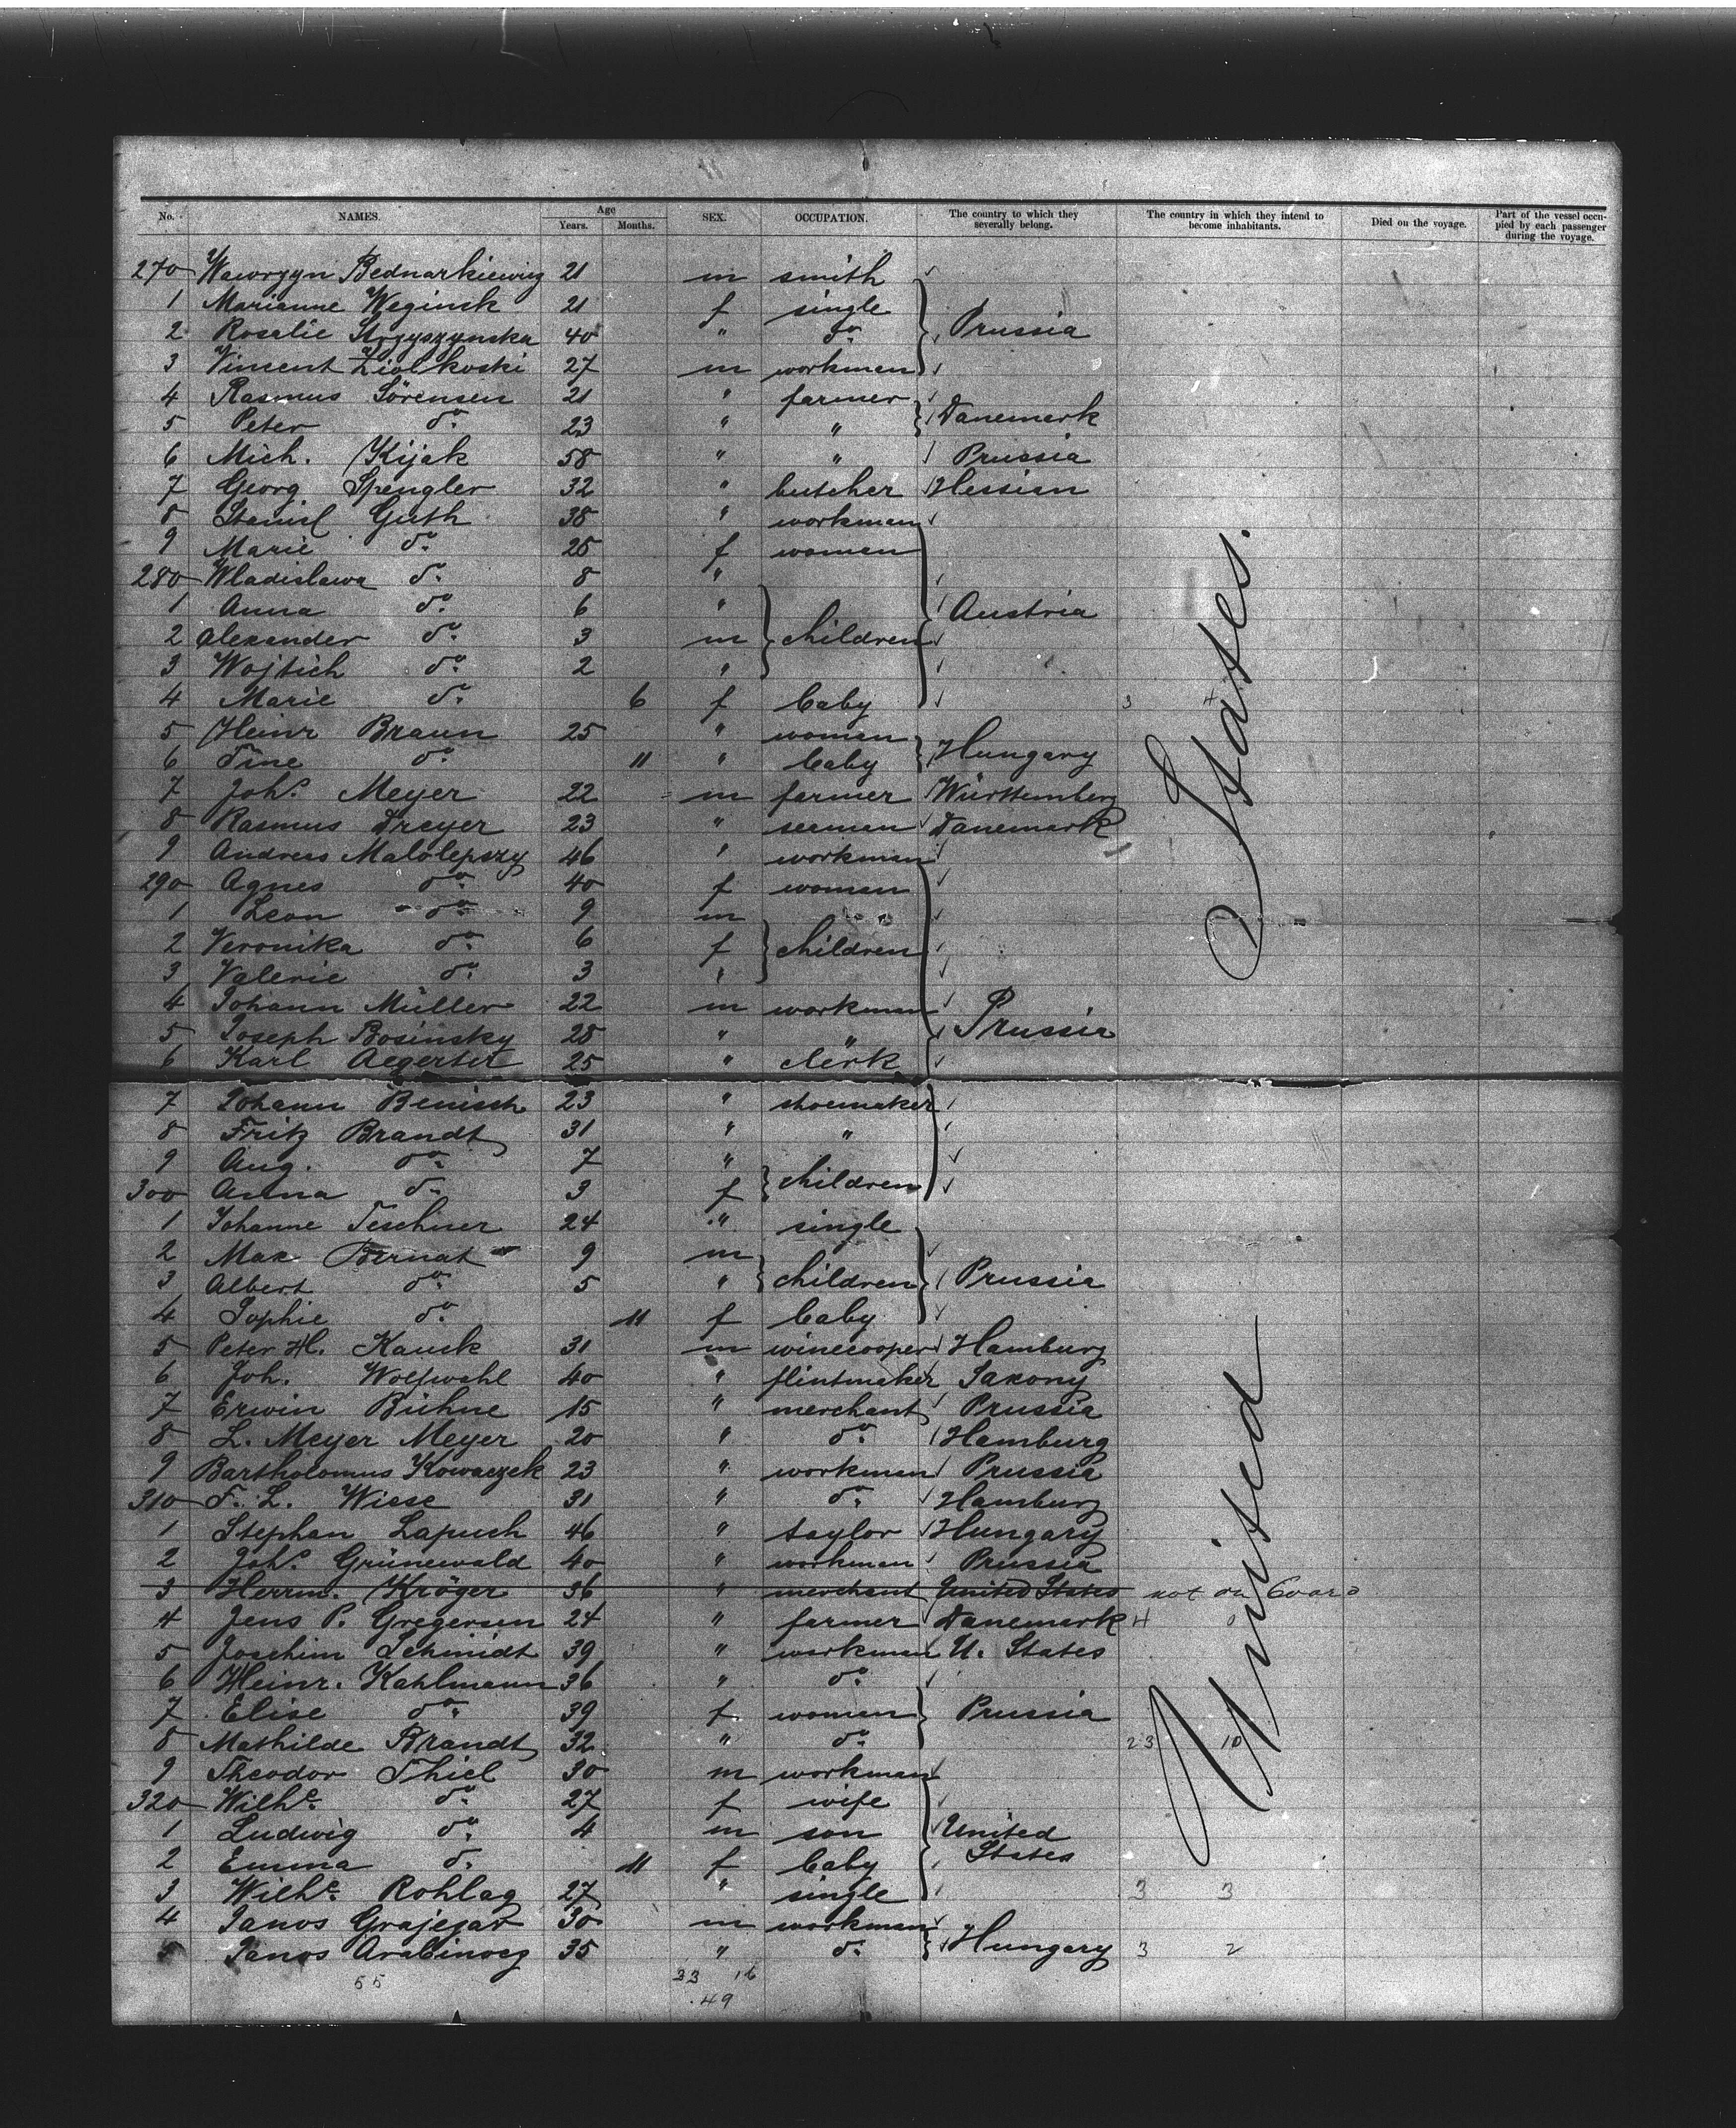 No. NAMES. Age Years. Months. SEX. OCCUPATION. The country to which they severally belong. The country in which they intend to become inhabitants. Died on the voyage. Part of the vessel occupied by each passenger during the voyage.
270 Wawrzyn Bednarkiewicz 21 m smith
1 Marianne Weginsk 21 f single
2 Rosalie Strzyszynska 40 " do. Prussia
3 Vincent Ziolkoski 27 m workman
4 Rasmus Sörensen 21 " farmer
5 Peter do. 23 " " Danemark
6 Mich. Kijak 58 " " Prussia
7 Georg Spengler 32 " butcher Hessian
8 Stanisl Guth 38 " workman
9 Marie do. 25 f woman
280 Wladislawa do. 8 "
1 Anna do. 6 " Austria
2 Alexander do. 3 m children
3 Wojtich do. 2 "
4 Marie do. 6 f baby 3 4
5 Heinr Braun 25 " woman
6 Tine do. 11 " baby Hungary
7 Johs. Meyer 22 m farmer Württemberg
8 Rasmus Dreyer 23 " seeman Danemark
9 Andreas Malolepszy 46 " workman
290 Agnes do. 40 f woman
1 Leon do. 9 m
2 Veronika do. 6 f children
3 Valerie do. 3 "
4 Johann Müller 22 m workman
5 Joseph Bosinsky 28 " " Prussia
6 Karl Aegerter 25 " clerk
7 Johann Benisch 23 " shoemaker
8 Fritz Brandt 31 " "
9 Aug. do. 7 "
300 Anna do. 3 f children
1 Johanne Teschner 24 " single
2 Max Bernat 9 m
3 Albert do. 5 " children Prussia
4 Sophie do. 11 f baby
5 Peter H. Kausk 31 m winecooper Hamburg
6 Joh. Wolfwahl 40 " flintmaker Saxony
7 Erwin Bühne 15 " merchant Prussia
8 L. Meyer Meyer 20 " do. Hamburg
9 Bartholomus Kowaczek 23 " workman Prussia
310 F. L. Wiese 31 " do. Hamburg
1 Stephan Lapuch 46 " taylor Hungary
2 Johs. Grünewald 40 " workman Prussia
3 Herrm. Kröger 36 " merchant United States not on board
4 Jens P. Gregersen 24 " farmer Danemark 4 0
5 Joachim Schmidt 39 " workman U. States
6 Heinr. Kahlmann 36 " do.
7 Elise do. 39 f woman Prussia
8 Mathilde Brandt 32 " do. 23 10
9 Theodor Thiel 30 m workman
320 Wilhe. do. 27 f wife
1 Ludwig do. 4 m son United
2 Emma do. 11 f baby States
3 Wilhe. Rohlag 27 " single 3 3
4 Janos Grajegar 30 m workman
5 Janos Arabinocz 35 " do. Hungary 3 2
55 33 16
49
United States.